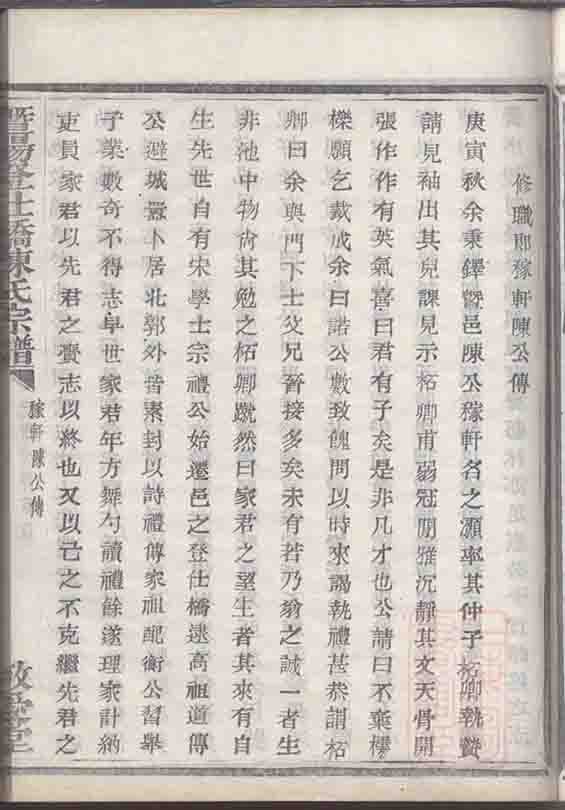 修職郎稼軒陳公傳
庚寅秋余秉鐸暨邑陳公稼軒名之灝率其仲子柘卿執贄
請見袖出其兒課見示柘卿甫弱冠閒雅沉靜其文天骨開
張作作有英氣喜曰君有子矣是非凡才也公請曰不棄樗
櫟願乞裁成余曰諾公數致餽問以時來謁執禮甚恭謂柘
卿曰余與門下士父兄晉接多矣未有若乃翁之誠一者生
非池中物尙其勉之柘卿蹴然曰家君之望生者其來有自
生先世自有宋學士宗禮公始遷邑之登仕橋逮高祖道傳
公避城囂卜居北郭外皆素封以詩禮傳家祖配衡公習舉
子業數奇不得志早世家君年方舞勺讀禮餘遂理家計納
吏員家君以先君之賫志以終也又以己之不克繼先君之
暨陽登仕橋陳氏宗譜
稼軒陳公傳
敬愛堂